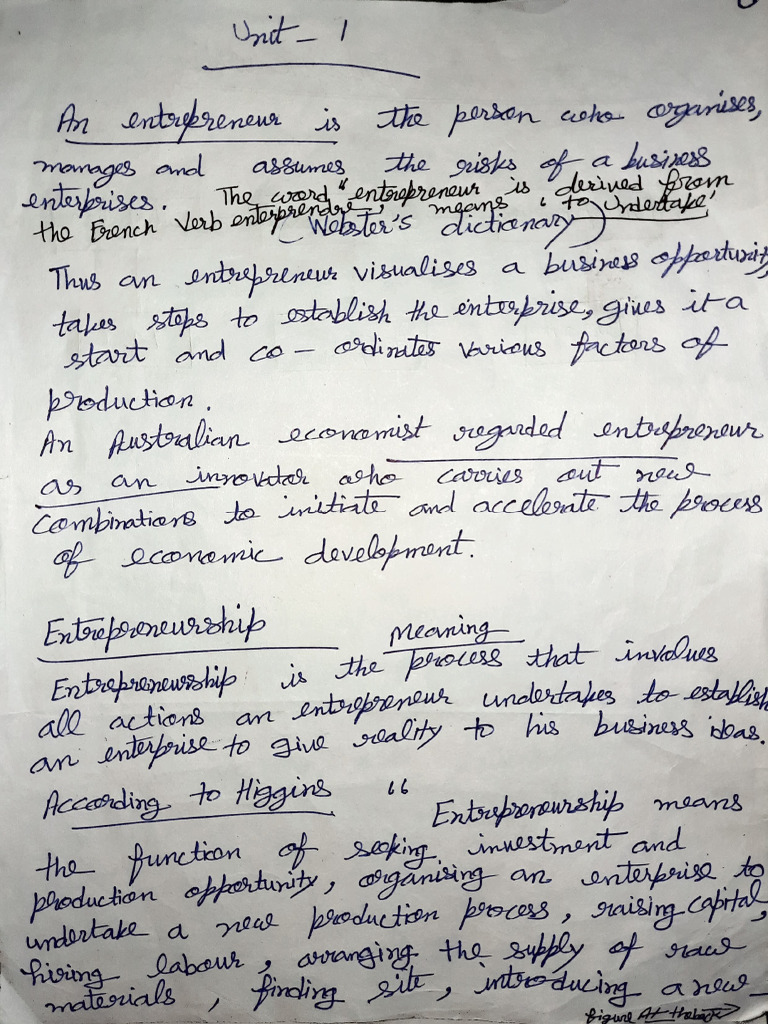 Unit - 1
An entrepreneur is the person who organises,
manages and assumes the risks of a business
enterprises. The word "entrepreneur is derived from
the French Verb enterprendre", means 'to Undertake'
(Webster's dictionary)
Thus an entrepreneur visualises a business opportunity,
takes steps to establish the enterprise, gives it a
start and co - ordinates various factors of
production.
An Australian economist regarded entrepreneur
as an innovator who carries out new
combinations to initiate and accelerate the process
of economic development.
Entrepreneurship Meaning
Entrepreneurship is the process that involves
all actions an entrepreneur undertakes to establish
an enterprise to give reality to his business ideas.
According to Higgins " Entrepreneurship means
the function of seeking investment and
production opportunity, organising an enterprise to
undertake a new production process, raising capital,
hiring labour, arranging the supply of raw
materials, finding site, introducing a new
figure At the back